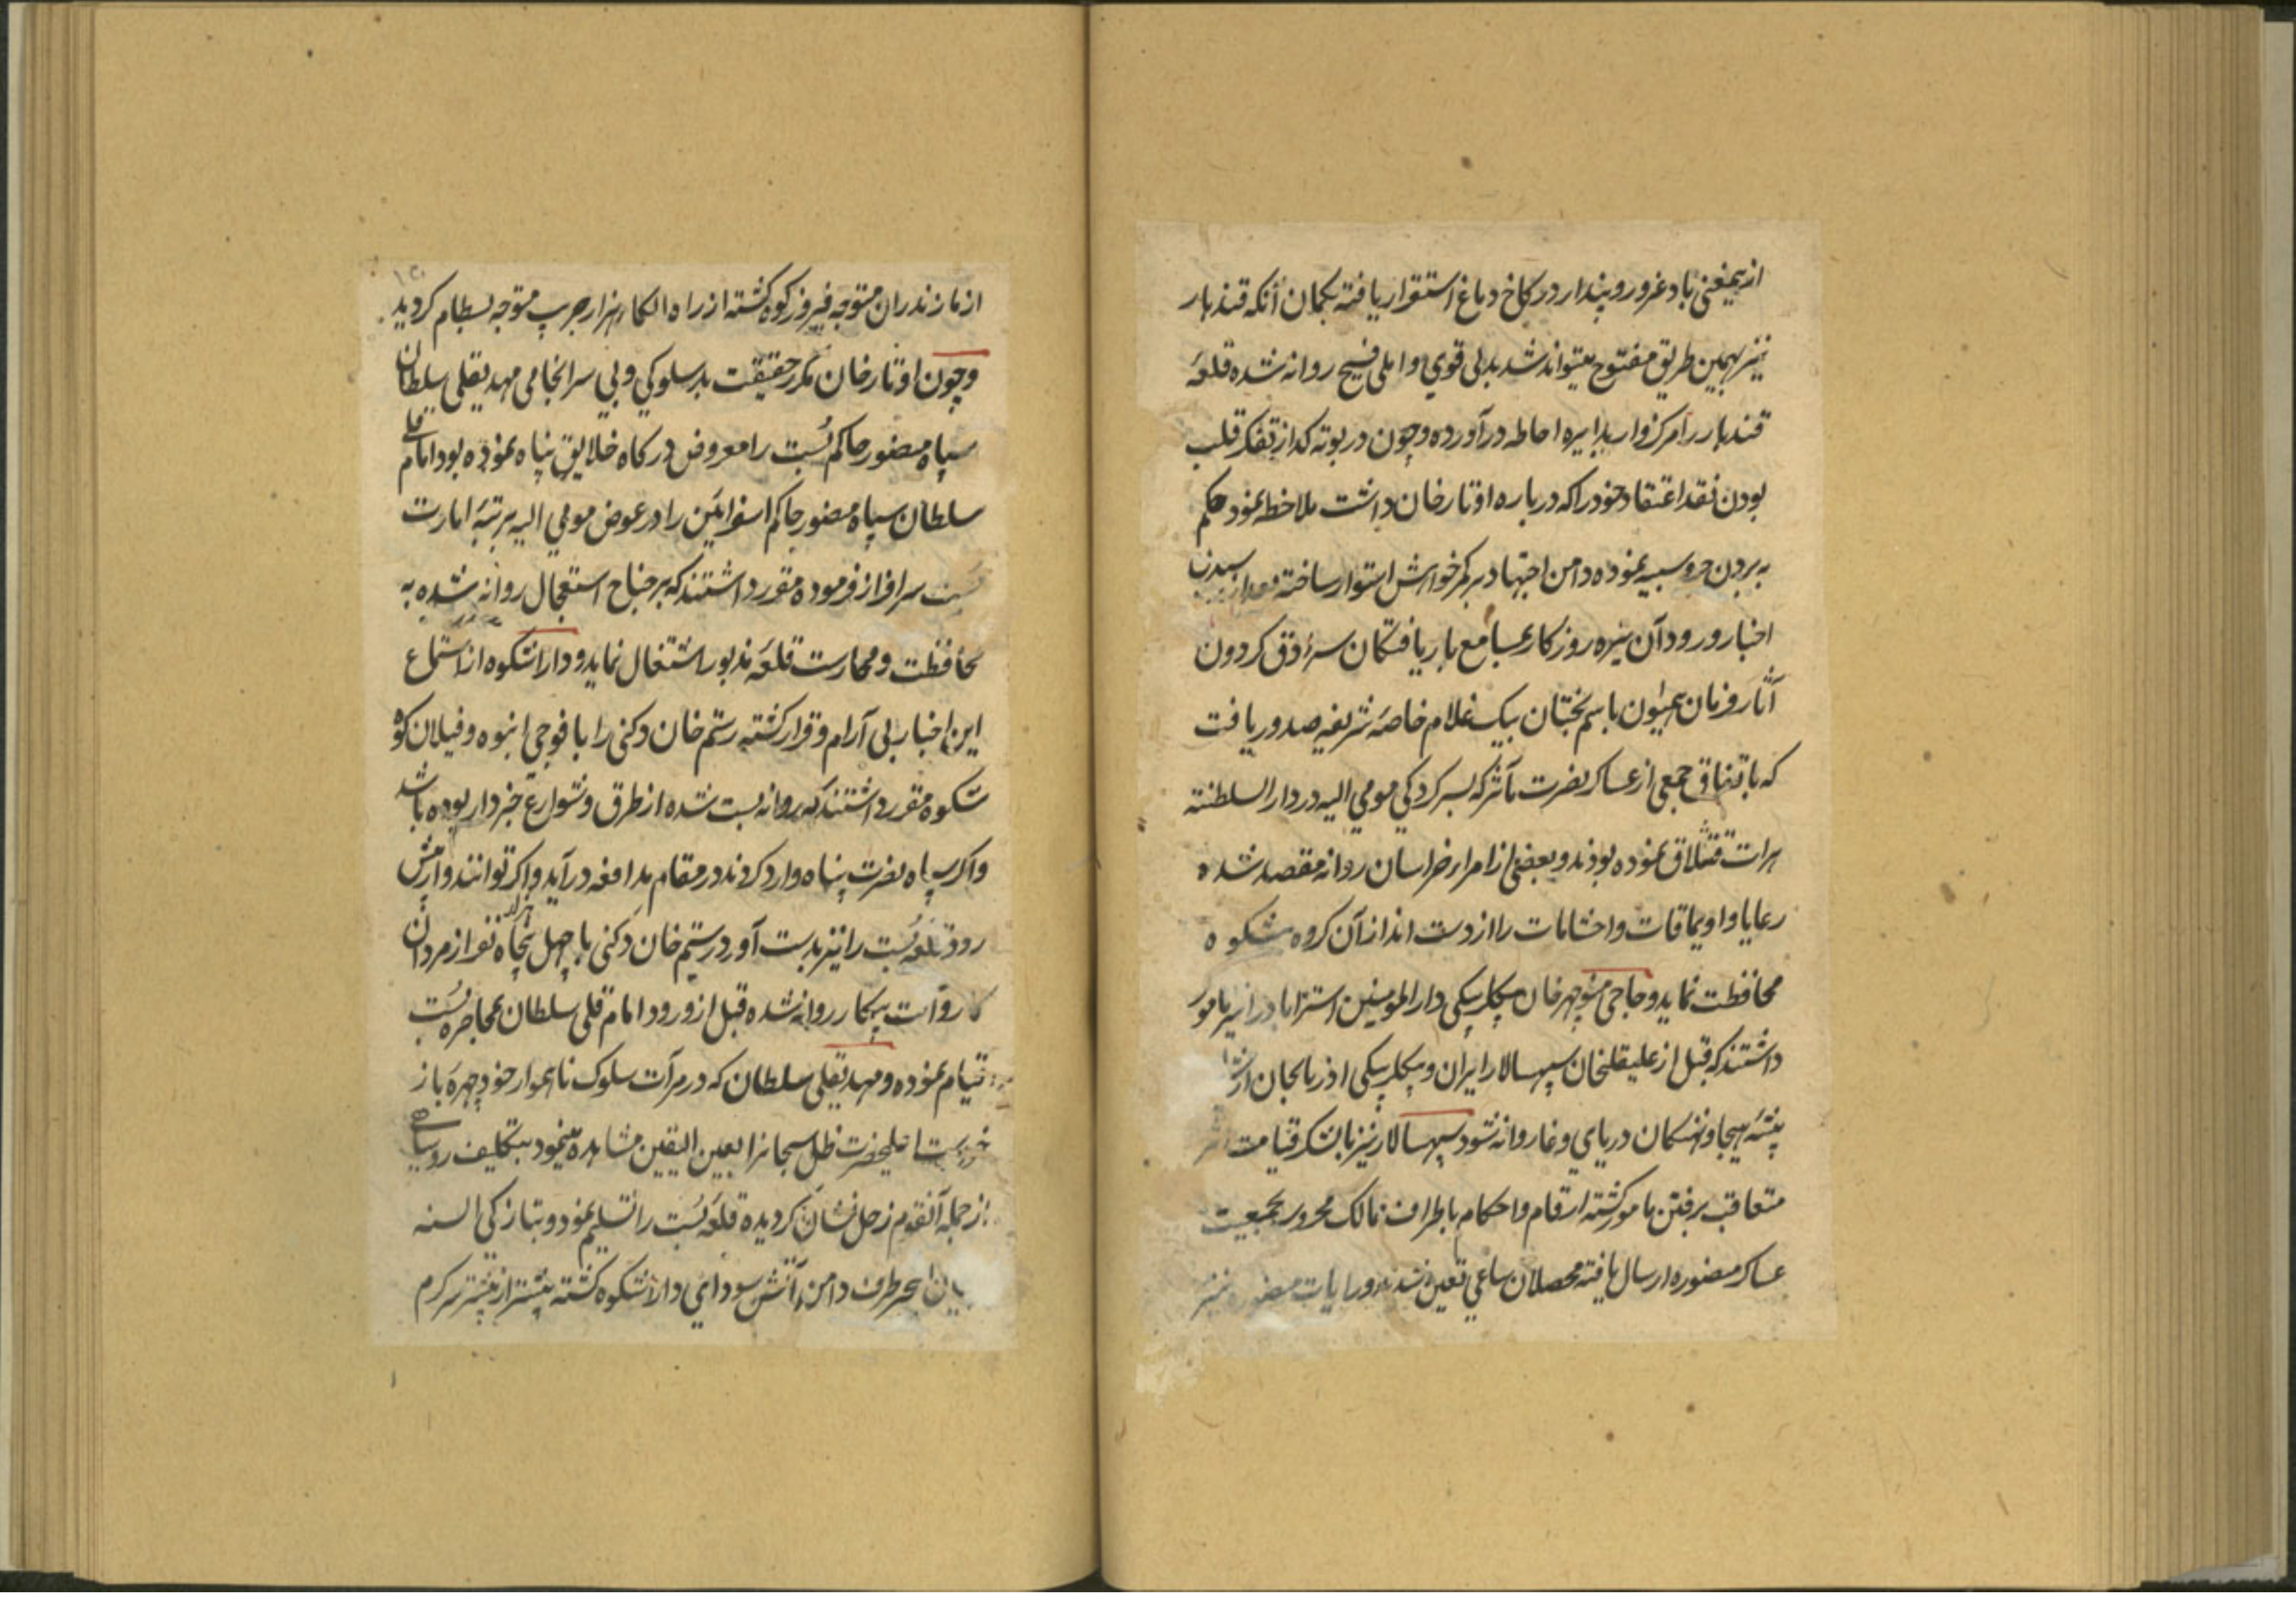 ازیمعنی باد غرور و پندار در کاخ دماغ استقرار یافته بکمان آنکه قندهار
نیز بهمین طریق مفتوح میتواند شد بدلی قوی و املی فسیح روانه شده قلعهٔ
قندهار را مرکزوار بدایره احاطه در آورده و چون در بوته کداز تفکر قلب
بودن نقد اعتقاد خود را که درباره اوتارخان داشت ملاحظه نمود حکم
به بردن جر و سیبه نموده دامن اجتهاد بر کمر خواهش استوار ساخته بعد از رسیدن
اخبار ورود آن تیره روزکار بمسامع باریافتکان سرادق کردون
آثار فرمان همیون باسم نجبتان بیک غلام خاصهٔ شریفه صدور یافت
که باتفاق جمعی از عساکر نصرت مآثر که بسرکردکی مومی الیه در دار السلطنته
هرات قشلاق نموده بودند و بعضی از امراء خراسان روانه مقصد شده
رعایا و اویماقات و احشامات را از دست انداز آن کروه شکوه
محافظت نماید و حاجی منوچهرخان بیکلربیکی دار المومنین استراباد را نیز مامور
داشتند که قبل از علیقلیخان سپهسالار ایران و بیکلربیکی اذربایجان از
بیشهٔ هیجا و نهنکان دریای وغا روانه شود سپهسالار نیز با لشکر قیامت اثر
متعاقب برفتن مامور کشته ارقام و احکام باطراف ممالک محروسه بجمعیت
عساکر منصوره ارسال یافته محصلان ساعی تعیین شدند و رایات منصوره نیز
از مازندران متوجه فیروزکوه کشته از راه الکاء هزارجریب متوجه بسطام کردید
و چون اوتارخان مکرر حقیقت بدسلوکی و بی سرانجامی مهدیقلی سلطان
سیاه منصور حاکم بُست را معروض درکاه خلایق پناه نموده بود امام قلی
سلطان سیاه منصور حاکم اسفراین را در عوض مومی الیه بمرتبهٔ امارت
بست سرافراز فرموده مقرر داشتند که بر جناح استعجال روانه شده به
محافظت و محارست قلعهٔ مذبور اشتغال نماید و داراشکوه از استماع
این اخبار بی آرام و قرار کشته رستم خان دکنی را با فوجی انبوه و فیلان کوه
شکوه مقرر داشتند که روانه بست شده از طرق و شوارع خبردار بوده باشد
و اکر سپاه نصرت پناه وارد کردند در مقام مدافعه در آید و اکر توانند
رود قلعه بُست را نیز بدست آورد رستم خان دکنی با چهل پنجاه هزار نفر از مردان
کار و آلت پیکار روانه شده قبل از ورود امام قلی سلطان بمحاصره بُست
قیام نموده و مهدیقلی سلطان که در مرآت سلوک ناهموار خود چهره باز
خواست اعلیحضرت ظل سبحانرا بعین الیقین مشاهده مینمود بتکلیف روسیاهی
از جمله آنقوم زحل نشان کردیده قلعه بُست را تسلیم نمود و بتازکی السنه
بیان هر طرف دامن آتش سودای داراشکوه کشته بیشتر از پیشتر سرکرم